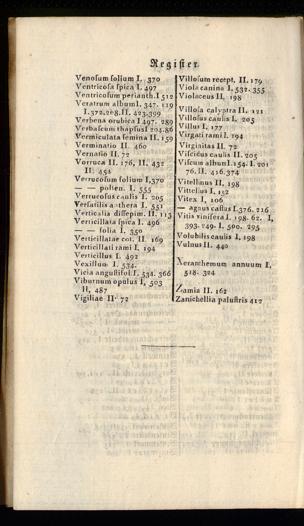 Register
Venosum folium I. 370
Ventricosa spica I. 497
Ventricosum perianth. I 512
Veratrum album I. 347. 119
I. 372, 283. II. 423. 399
Verbena orubica I 497. 289
Verbascum thapsus I 204. 86
Vermiculata semina II. 159
Verminatio II. 460
Vernatio II. 72
Verruca II. 176, II. 432
II. 451
Verrucosum folium I, 370
— — pollen. I. 555
Verrucosus caulis I. 205
Versatilis anthera I. 551
Verticalia dissepim. II. 113
Verticillata spica I. 496
— — folia I. 350
Verticillatae cot. II. 169
Verticillati rami I. 194
Verticillus I. 492
Vexillum I. 534.
Vicia angustifol. I. 534. 366
Viburnum opulus I, 503
II, 487
Vigiliae II. 72
Villosum recept. II. 179
Viola canina I, 532. 355
Violaceus II, 198
Villosa calyptra II. 121
Villosus caulis I. 203
Villus I, 177
Virgati rami I. 194
Virginitas II. 72
Viscidus caulis II. 205
Viscum album I. 154. I. 201
76, II. 416. 374
Vitellinus II, 198
Vittellus I, 132
Vitex I, 106
— agnus castus I. 376. 216
Vitis vinifera I. 198. 62. I,
393. 249. I. 500. 295
Volubilis caulis I, 198
Vulnus II. 440
Xeranthemum annuum I,
518. 324
Zamia II. 162
Zanichellia palustris 412